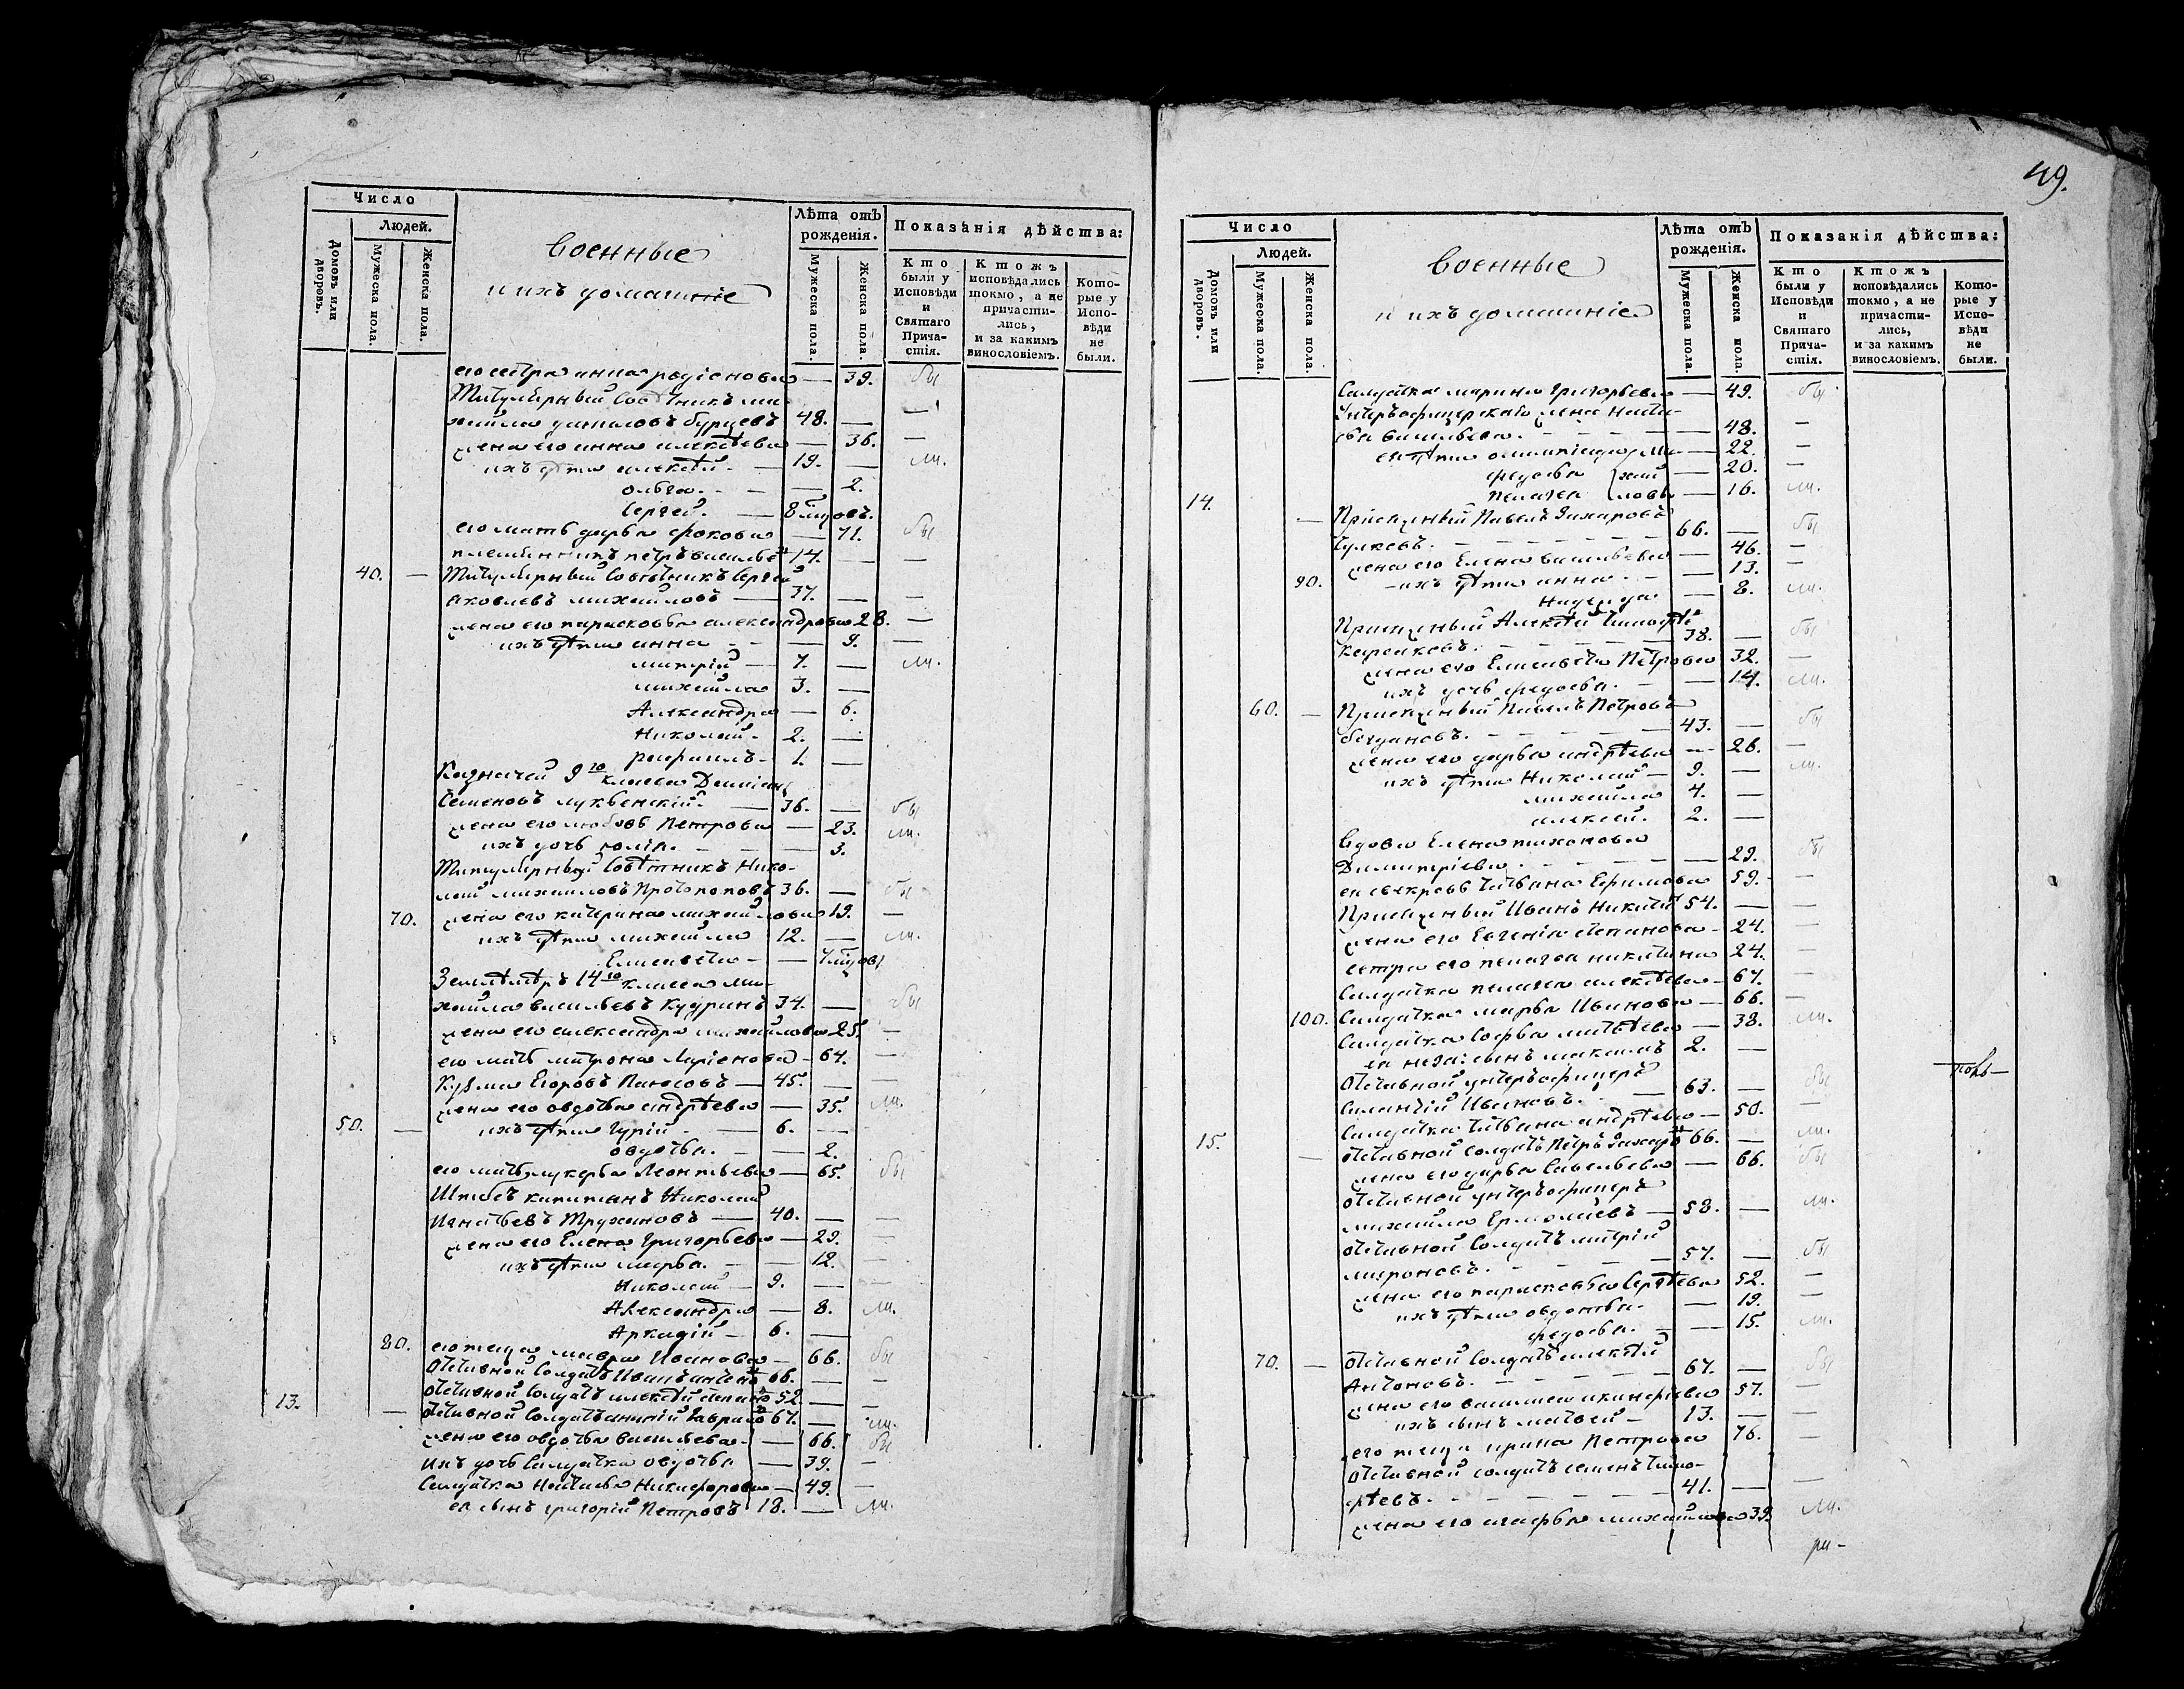 Число
Людей.
Домовъ или дворовъ.
Мужеска пола.
Женска пола.
военные
и ихъ домашнiе
Лѣта отъ рожденiя.
Мужеска пола.
Женска пола.
Показанiя дѣйства:
Кто были у Исповѣди и Святаго Прича-стiя.
Ктожъ исповѣдались токмо, а не причасти-лись, и за какимъ винословiемъ.
Кото-рые у Испо-вѣди не были.
его сестра анна родiонова — 39. бы
Титулярный совѣтникъ ми-
хайла даниловъ бурцевъ 48. —
жена его анна алексѣева — 36. —
ихъ дѣти алексѣй. — 19. — мл.
ольга. — — 2.
сергей. — 8 мцовъ.
его мать дарья фокова — 71. бы
племянникъ петръ васильевъ 14. — —
40. — Титулярный Совѣтникъ Сергей
яковлевъ михайловъ — 37. — —
жена его парасковья александрова 28. —
ихъ дѣти анна — — 9. —
митрiй — 7. — мл.
михайла 3. —
Александра — 6.
Николай - 2. —
рафаилъ - 1. —
Казначей 9го класса Дамiанъ
Семеновъ лукьенскiй. — 36. — бы
жена его любовь Петрова — 23. мл.
ихъ дочь юлiя. — — 3.
Титулярный Совѣтникъ Нико-
лай михайловъ Протопоповъ 36. — бы
70. жена его катерина михайлова 19. —
ихъ дѣти михайла 12. — мл.
Елисавета - — 4 мцовъ
Землемѣръ 14го класса ми-
хайла васильевъ Кудринъ 34. — бы
жена его александра михайлова 25. —
его мать матрона Ларiонова - 64. —
Кузма Егоровъ Панасовъ — 45. — —
жена его овдотья андрѣева — 35. мл.
50. — ихъ дѣти Гурiй — 6. —
овдотья. — — 2.
его мать лукерья Леонтьева — 65. бы
Штабсъ капитанъ Николай
Игнатьевъ Трухановъ — 40. — —
жена его Елена Григорьева — 29. —
ихъ дѣти марья. — — 12. —
Николай — 9. — —
Александра — 8. мл.
Аркадiй — 6. —
80. его теща мавра Иванова — 66. бы
Отставной Солдатъ Иванъ 66. — —
отставной Солдатъ алексѣй 52. — —
13. — отставной Солдатъ Гаврил 67. — мл.
жена его овдотья васильева — 66. бы
ихъ дочь Салдатка овдотья — 39. —
Салдатка Настасья Никифорова — 49. —
ея сынъ григорiй Петровъ 18. — мл.
49.
Число
Людей.
Домовъ или дворовъ.
Мужеска пола.
Женска пола.
военные
и ихъ домашнiе
Лѣта отъ рожденiя.
Мужеска пола.
Женска пола.
Показанiя дѣйства:
Кто были у Исповѣди и Святаго Прича-стiя.
Ктожъ исповѣдались токмо, а не причасти-лись, и за какимъ винословiемъ.
Кото-рые у Испо-вѣди не были.
Салдатка марина Григорьева — 49. бы
Унтеръофицерская жена Наста-
сья васильева. — — 48. —
ея дѣти олимпiада ми- — 22. —
федосья хай — 20. —
14. пелагея ловы — 16. мл.
— Приказный Павелъ Захаровъ
Чулковъ. — 66. — бы
жена его Елена васильева — 46. —
90. ихъ дѣти анна. — — 13. —
Надежда — 8. мл.
Приказный Алексѣй Тимофѣе
38. — бы
жена его Елисавета Петрова 32. —
ихъ дочь федосья. — — 14. мл.
60. — Приказный Павелъ Петровъ
богдановъ. — 43. — бы
жена его дарья андрѣева — 26. —
ихъ дѣти Николай — 9. — мл.
михайла 4. —
алексѣй. 2. —
Вдова Елена тихонова
Димитрiева. — — 29. бы
ея свекровь татьяна Ефимова 59. —
Приказный Иванъ Никитинъ 54. — —
жена его Евгенiя степанова — 24. —
сестра его пелагея никитина 24. —
Салдатка пелагея алексѣева — 67. —
100. Салдатка марья Иванова — 66. —
Салдатка Софья матвѣева — 38. мл.
ея неза: сынъ максимъ 2. —
Отставной унтеръофицеръ
Иванов. — 63. — бы
Салдатка татьяна андрѣева — 50. —
15. — отставной солдатъ Петръ Захаровъ 66. — мл.
жена его дарья Савельева — 66. бы
отставной унтеръофицеръ
михайла Ермолаевъ — 58. — мл.
отставной Солдатъ митрiй
мироновъ. — 57. — бы
жена его парасковья Сергѣева 52. —
ихъ дѣти овдотья. — 19. —
федосья. — — 15. мл.
70. — отставной Солдатъ алексѣй
Антоновъ. — 67. — бы
жена его василиса 57. —
ихъ сынъ матвей — 13. — —
его теща ирина Петрова 76. —
отставной солдатъ семенъ тимо-
фѣевъ. — 41. — —
жена его агафья михайлова 39. мл.